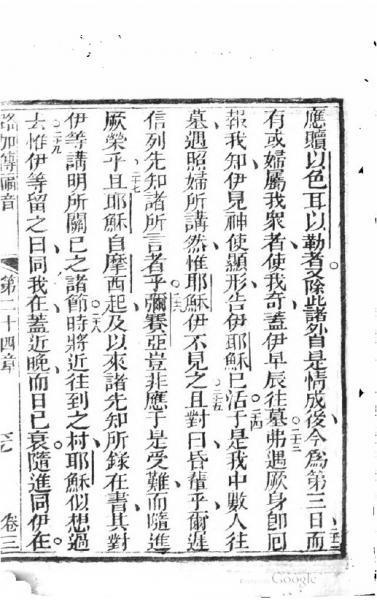 應贖以色耳以勒者又除此諸外自是情成後今為第三日而
二十二
有或婦屬我眾者使我奇蓋伊早辰往墓弗遇厥身即回
二十三
報我知伊見神使顯形告伊耶穌已活于是我中數人往
二十四
墓遇照婦所講然惟耶穌伊不見之且對曰昏輩乎爾遲
二十五
信列先知諸所言者乎彌賽亞豈非應于是受難而隨進
二十六
厥榮乎且耶穌自摩西起及以來諸先知所錄在書其對
二十七
伊等講明所關已之諸節時將近往到之村耶穌似想過
二十八
去惟伊等留之曰同我在蓋近晚而日已衰隨進同伊在
二十九
路加傳福音 第二十四章 卷三
Google